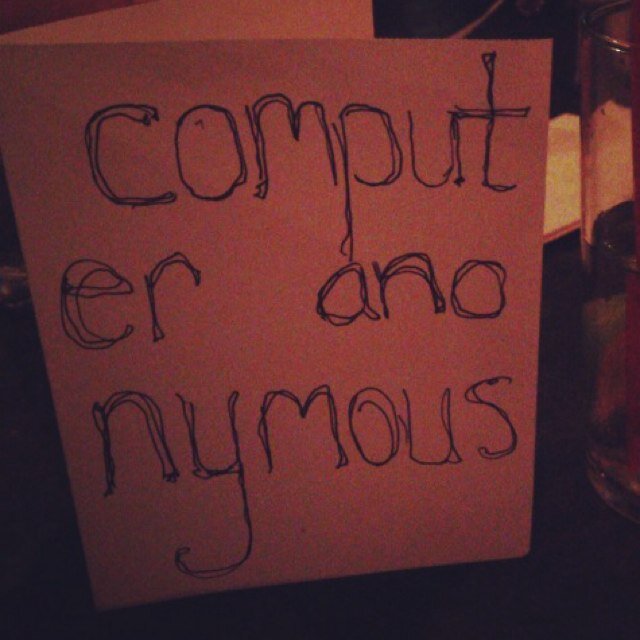 comput
er ano
nymous